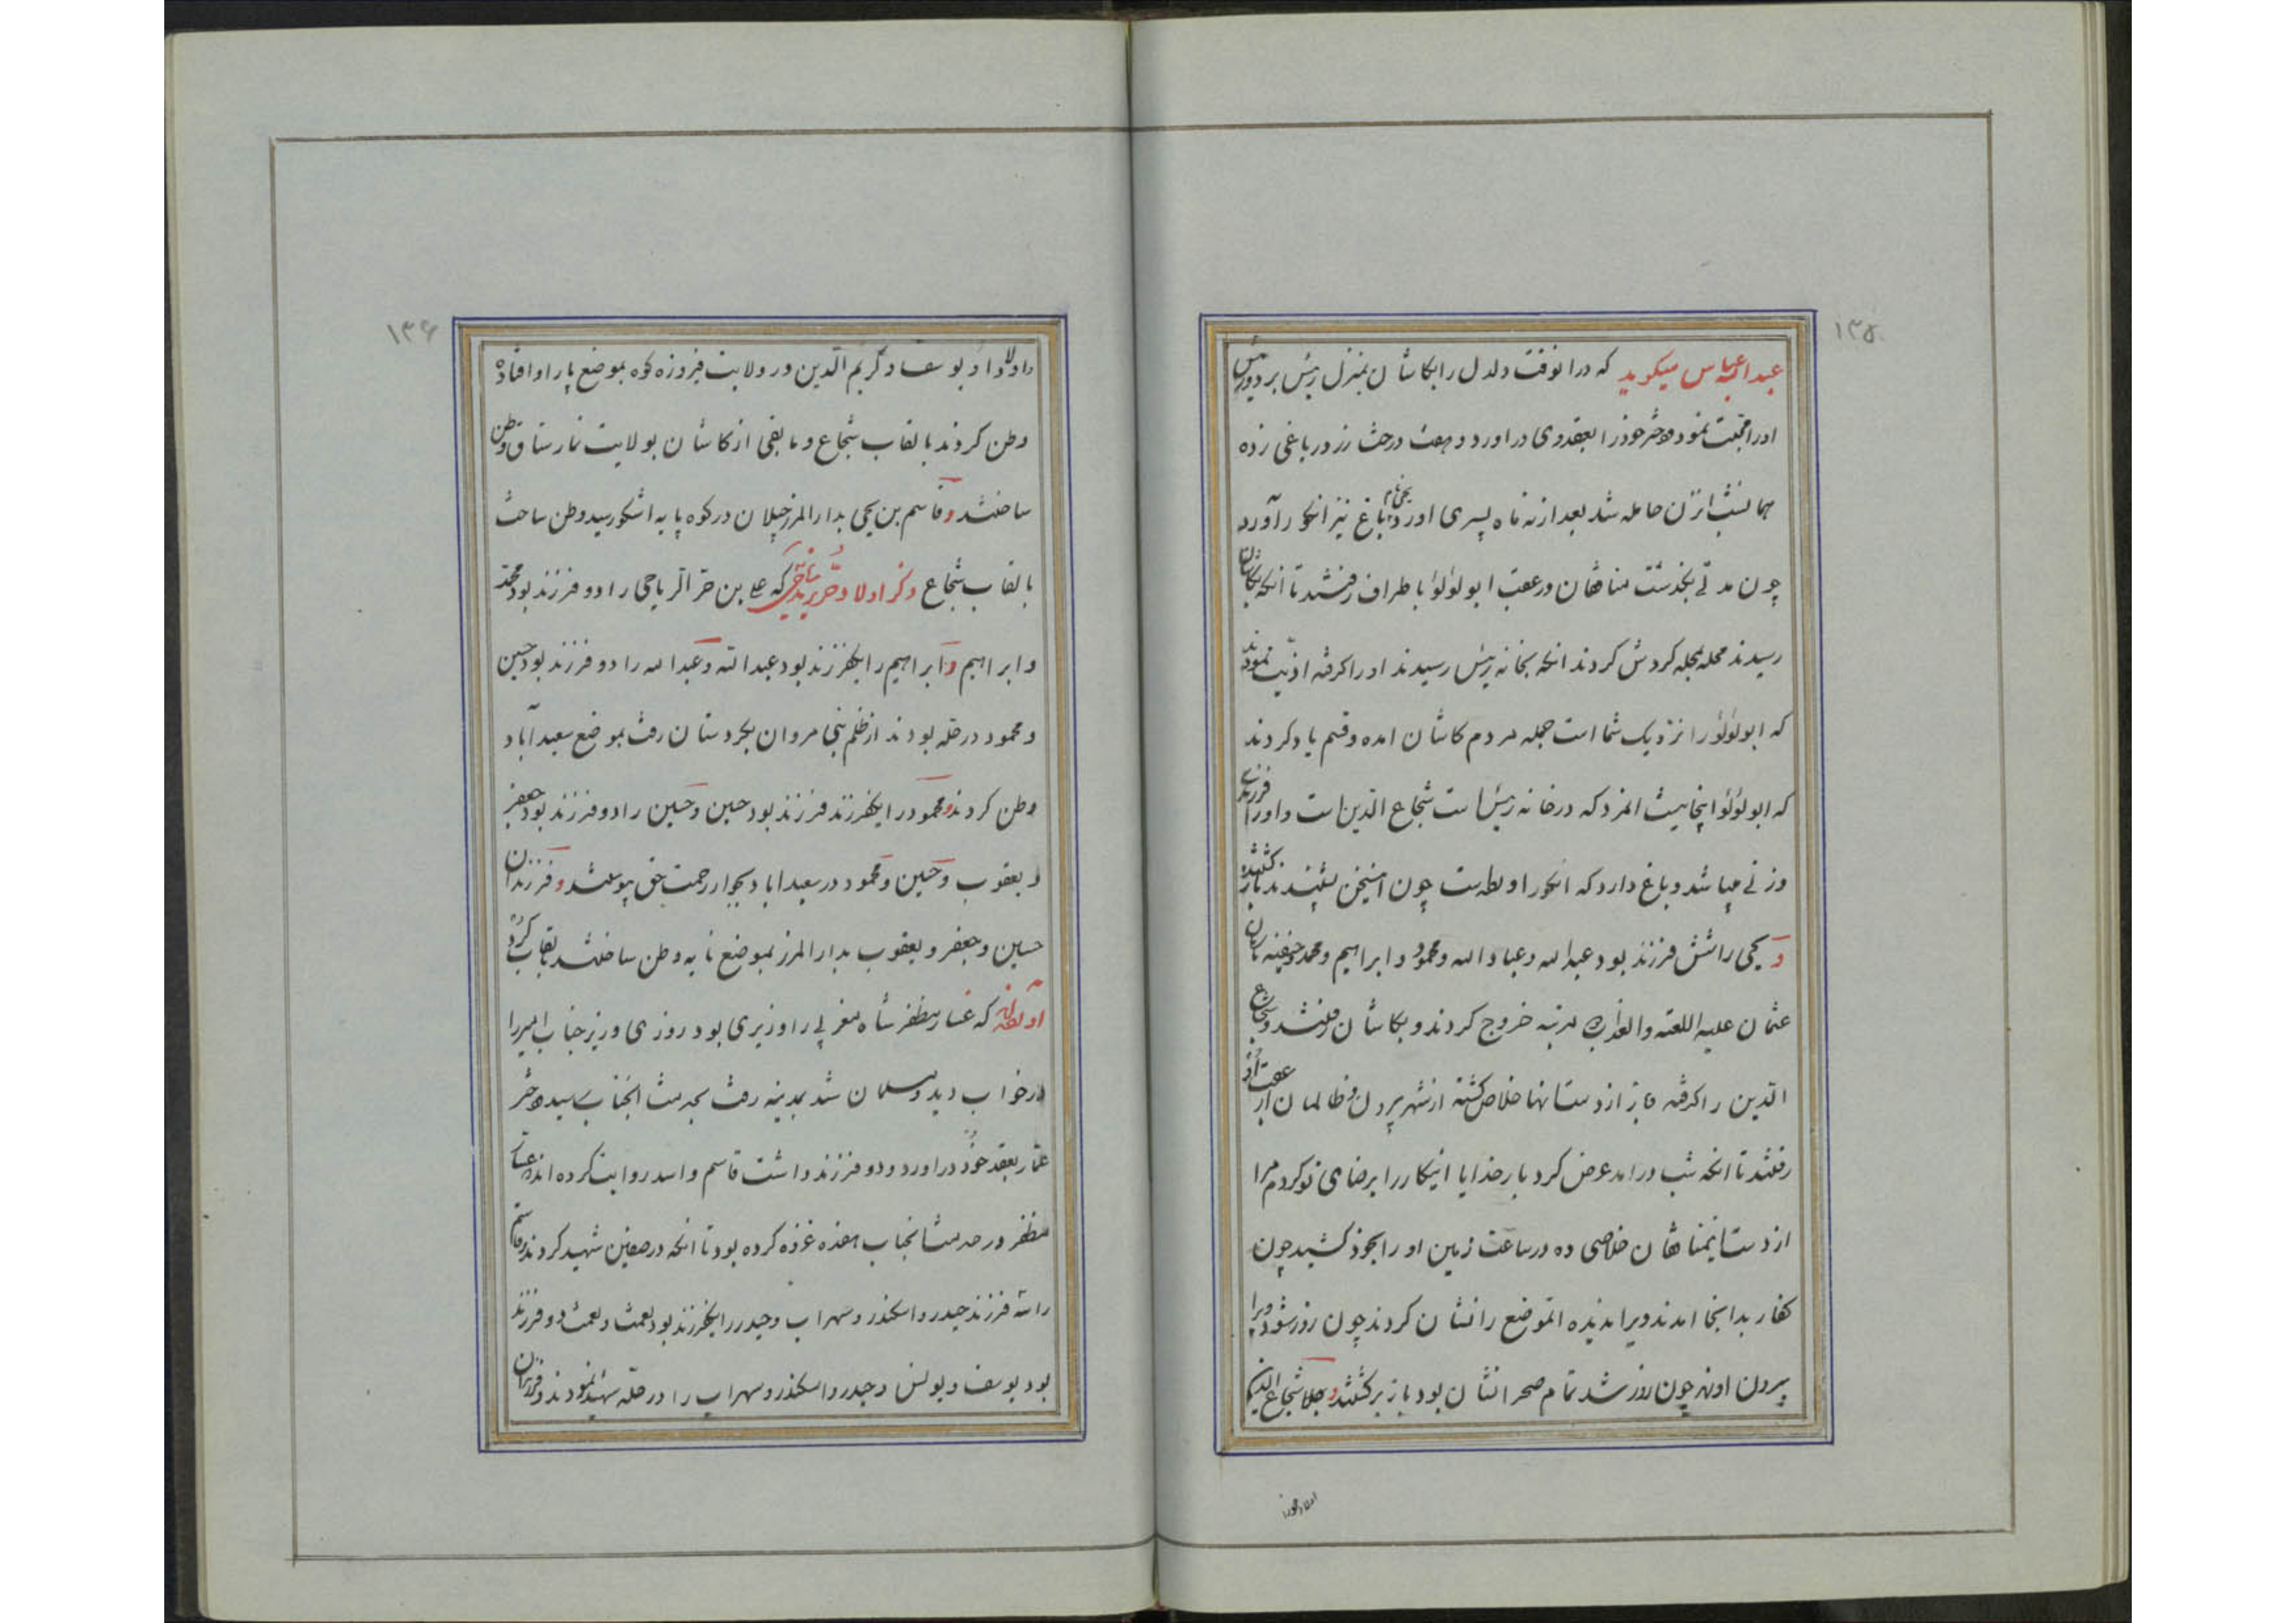 ۱۳۵
عبدالله عباس میگوید که درانوقت دلدل رابکاشان بمنزل رئیس برد ورئیس
اورا محبت نمود ودختر خودرا بعقدوی دراورد وهفت درخت رز درباغی زده
همانشب انزن حامله شد بعدازنه ماه پسری اورد یحیی نام باغ نیز انگور آورد
چون مدتی بگذشت منافقان درعقب ابولؤلؤ باطراف رفتند تا انکه بکاشان
رسیدند محله بمحله کردش کردند انکه بخانه رئیس رسیدند اوراکرفته اذیت نمودند
که ابولؤلؤ رانزدیک شما است جمله مردم کاشان امده وقسم یادکردند
که ابولؤلؤ اینجا نیست المردکه درخانه رئیس است شجاع الدین است واورا فرزندی
وزنی میباشد وباغ داردکه انکور او چون اینسخن بشنیدند باز کشتند
و یحیی راشش فرزند بود عبدالله وعباد الله ومحمود وابراهیم ومحمد حنفیه
عثمان علیه اللعنه والعذاب مرتبه خروج کردند وبکاشان رفتند وشجاع
الدین راکرفته باز ازدست انها خلاص کشته ازشهر بیرون رفت ظالمان از عقب او
رفتند تا انکه شب درامد عرض کرد بارخدایا اینکاررا برضای توکردم مرا
ازدست اینمنافقان خلاصی ده درساعت زمین اورابخود کشید چون
کفار بدانجا امدند ویرا ندیده انموضع رانشان کردند چون روز شود ویرا
بیرون اورند چون روز شد تمام صحرا نشان بود باز برکشتند شجاع الدین
۱۳۶
واولاد ابو یوسف وکریم الدین درولایت فیروزه کوه بموضع پارا وافتاده
وطن کردند بالقاب شجاع ومابقی ازکاشان بولایت نمارستاق وطن
ساختند وقاسم بن یحیی بدارالمرز جیلان درکوه پایه اشکور رسید وطن ساخت
بالقاب شجاع ذکر اولاد حر که علی بن حر الریاحی رادو فرزند بود محمد
وابراهیم وابراهیم رایکفرزند بود عبدالله وعبدالله رادو فرزند بود حسین
ومحمود درحله بودند ازظلم بنی مروان بکردستان رفت بموضع سعیدآباد
وطن کردند ومحمود رایکفرزند فرزند بود حسین وحسین رادو فرزند بود جعفر
و یعقوب وحسین ومحمود درسعیداباد بجوار رحمت حق پیوستند وفرزندان
حسین وجعفر ویعقوب بدارالمرز بموضع نایه وطن ساختند بقاب کرد
که عسار مظفر شاه مغربی را وزیری بود روزی وزیر جناب امیررا
درخواب دید ومسلمان شد بمدینه رفت بخدمت انجناب رسید ودختر
عمار بعقد خود دراورد ودو فرزند داشت قاسم واسد روایت کرده اند
مظفر درخدمت انجناب هفده غزوه کرده بود تا انکه درصفین شهید کردند
راسه فرزند حیدر واسکندر وسهراب وحیدر رایکفرزند بود نعمت ونعمت دو فرزند
بود یوسف ویونس وحیدر واسکندر وسهراب را درحله شهید نمودند وفرزندان